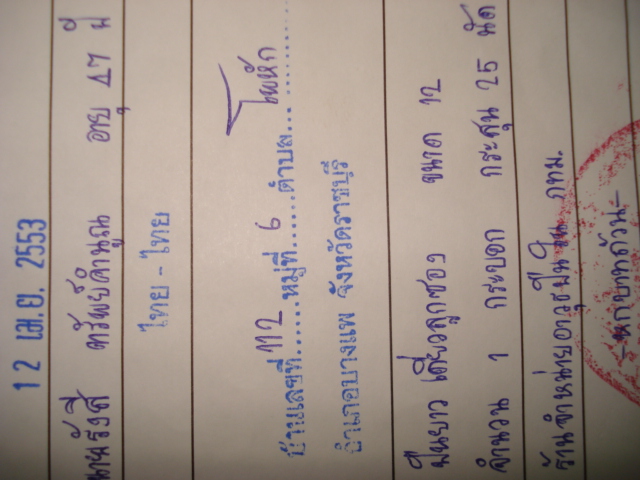 12 เม.ย. 2553
นายรังสี ทรัพย์ลำนูณ อายุ 47 ปี
ไทย - ไทย
บ้านเลขที่.....112.....หมู่ที่...6.....ตำบล...โพหัก...
อำเภอบางแพ จังหวัดราชบุรี
ปืนยาว เดี่ยวลูกซอง ขนาด 12
จำนวน 1 กระบอก กระสุน 25 นัด
ร้านจำหน่ายอาวุธปืน กทม.